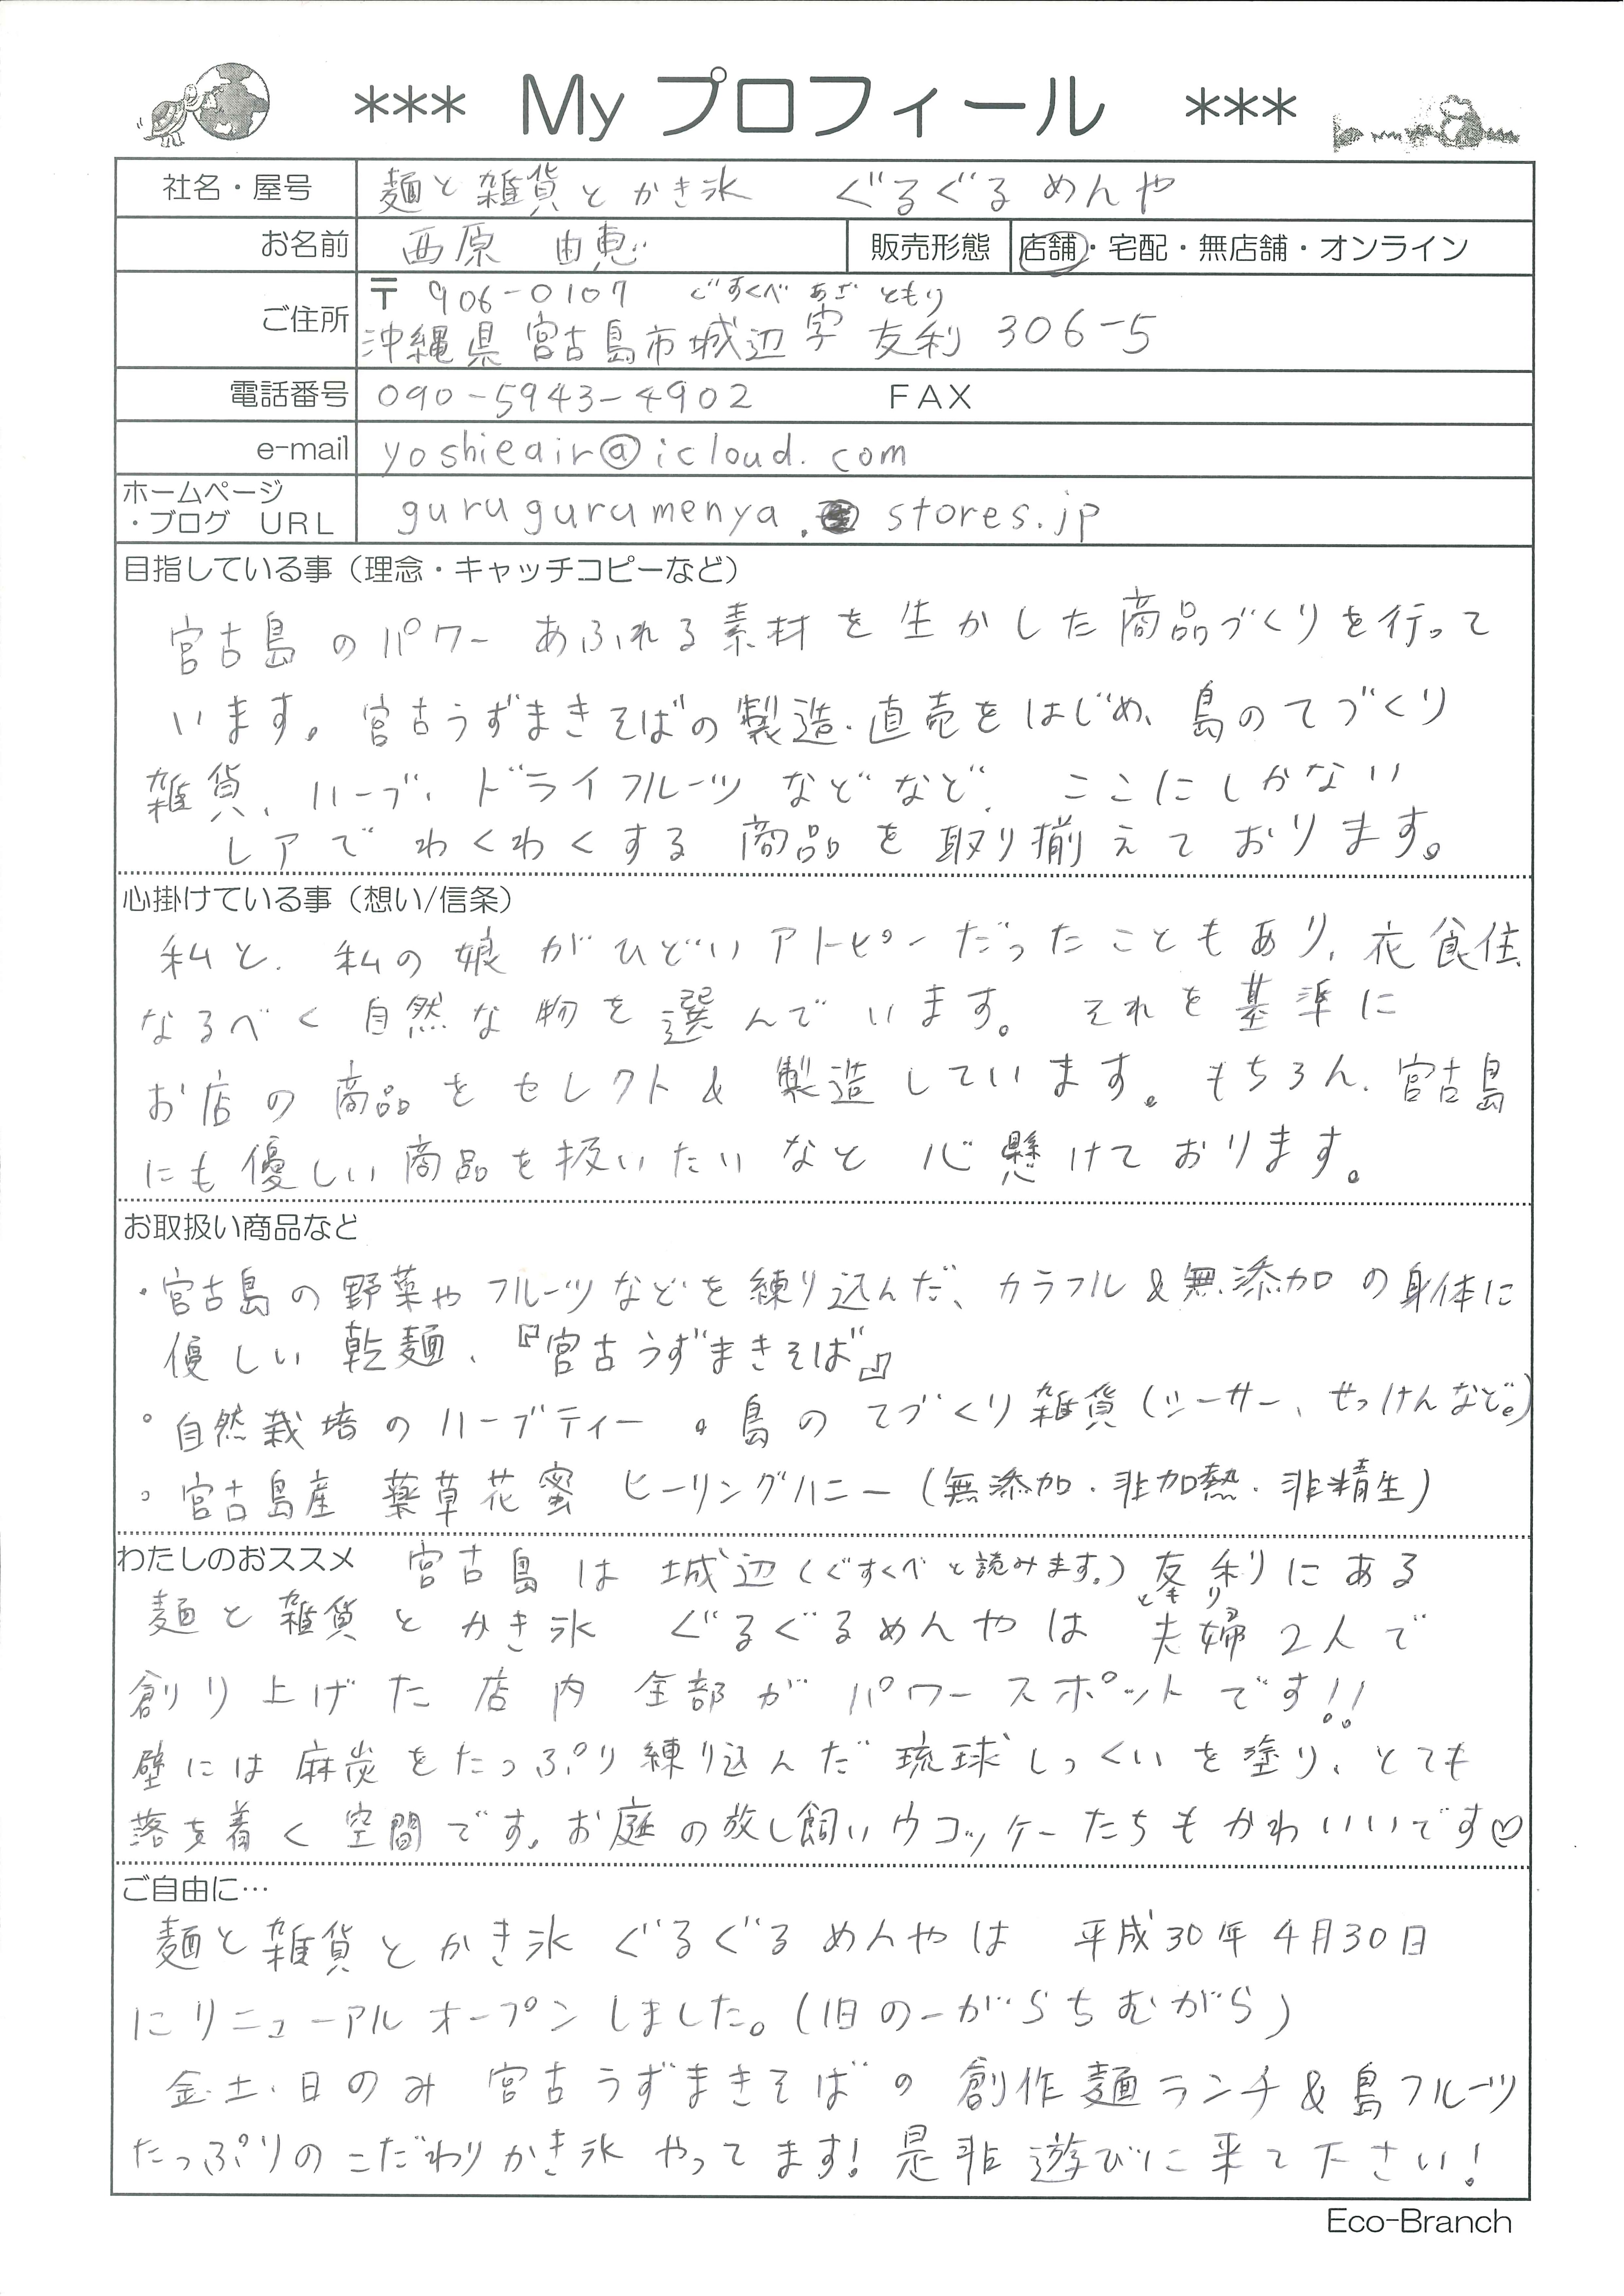 *** My プロフィール ***
社名・屋号 麺と雑貨とかき氷 ぐるぐるめんや
お名前 西原 由恵 販売形態 店舗・宅配・無店舗・オンライン
ご住所 〒906-0107 ぐすくべ あざ ともり
沖縄県宮古島市城辺字友利306-5
電話番号 090-5943-4902 FAX
e-mail yoshieair@icloud.com
ホームページ
・ブログ URL gurugurumenya.stores.jp
目指している事(理念・キャッチコピーなど)
宮古島のパワーあふれる素材を生かした商品づくりを行って
います。宮古うずまきそばの製造・直売をはじめ、島のてづくり
雑貨、ハーブ、ドライフルーツなどなど、ここにしかない
レアでわくわくする商品を取り揃えております。
心掛けている事(想い/信条)
私と、私の娘がひどいアトピーだったこともあり、衣食住、
なるべく自然な物を選んでいます。それを基準に
お店の商品をセレクト&製造しています。もちろん、宮古島
にも優しい商品を扱いたいなと心懸けております。
お取扱い商品など
・宮古島の野菜やフルーツなどを練り込んだ、カラフル&無添加の身体に
優しい乾麺、『宮古うずまきそば』
・自然栽培のハーブティー ・島のてづくり雑貨(シーサー、せっけんなど。)
・宮古島産 薬草花蜜 ヒーリングハニー(無添加・非加熱・非精生)
わたしのおススメ 宮古島は城辺(ぐすくべと読みます。)友利にある
ともり
麺と雑貨とかき氷 ぐるぐるめんやは 夫婦2人で
創り上げた店内全部がパワースポットです!!
壁には麻炭をたっぷり練り込んだ琉球しっくいを塗り、とても
落ち着く空間です。お庭の放し飼いウコッケーたちもかわいいです♡
ご自由に…
麺と雑貨とかき氷 ぐるぐるめんやは 平成30年4月30日
にリニューアルオープンしました。(旧のーがらちむがら)
金・土・日のみ 宮古うずまきそばの創作麺ランチ&島フルーツ
たっぷりのこだわりかき氷やってます!是非遊びに来て下さい!
Eco-Branch